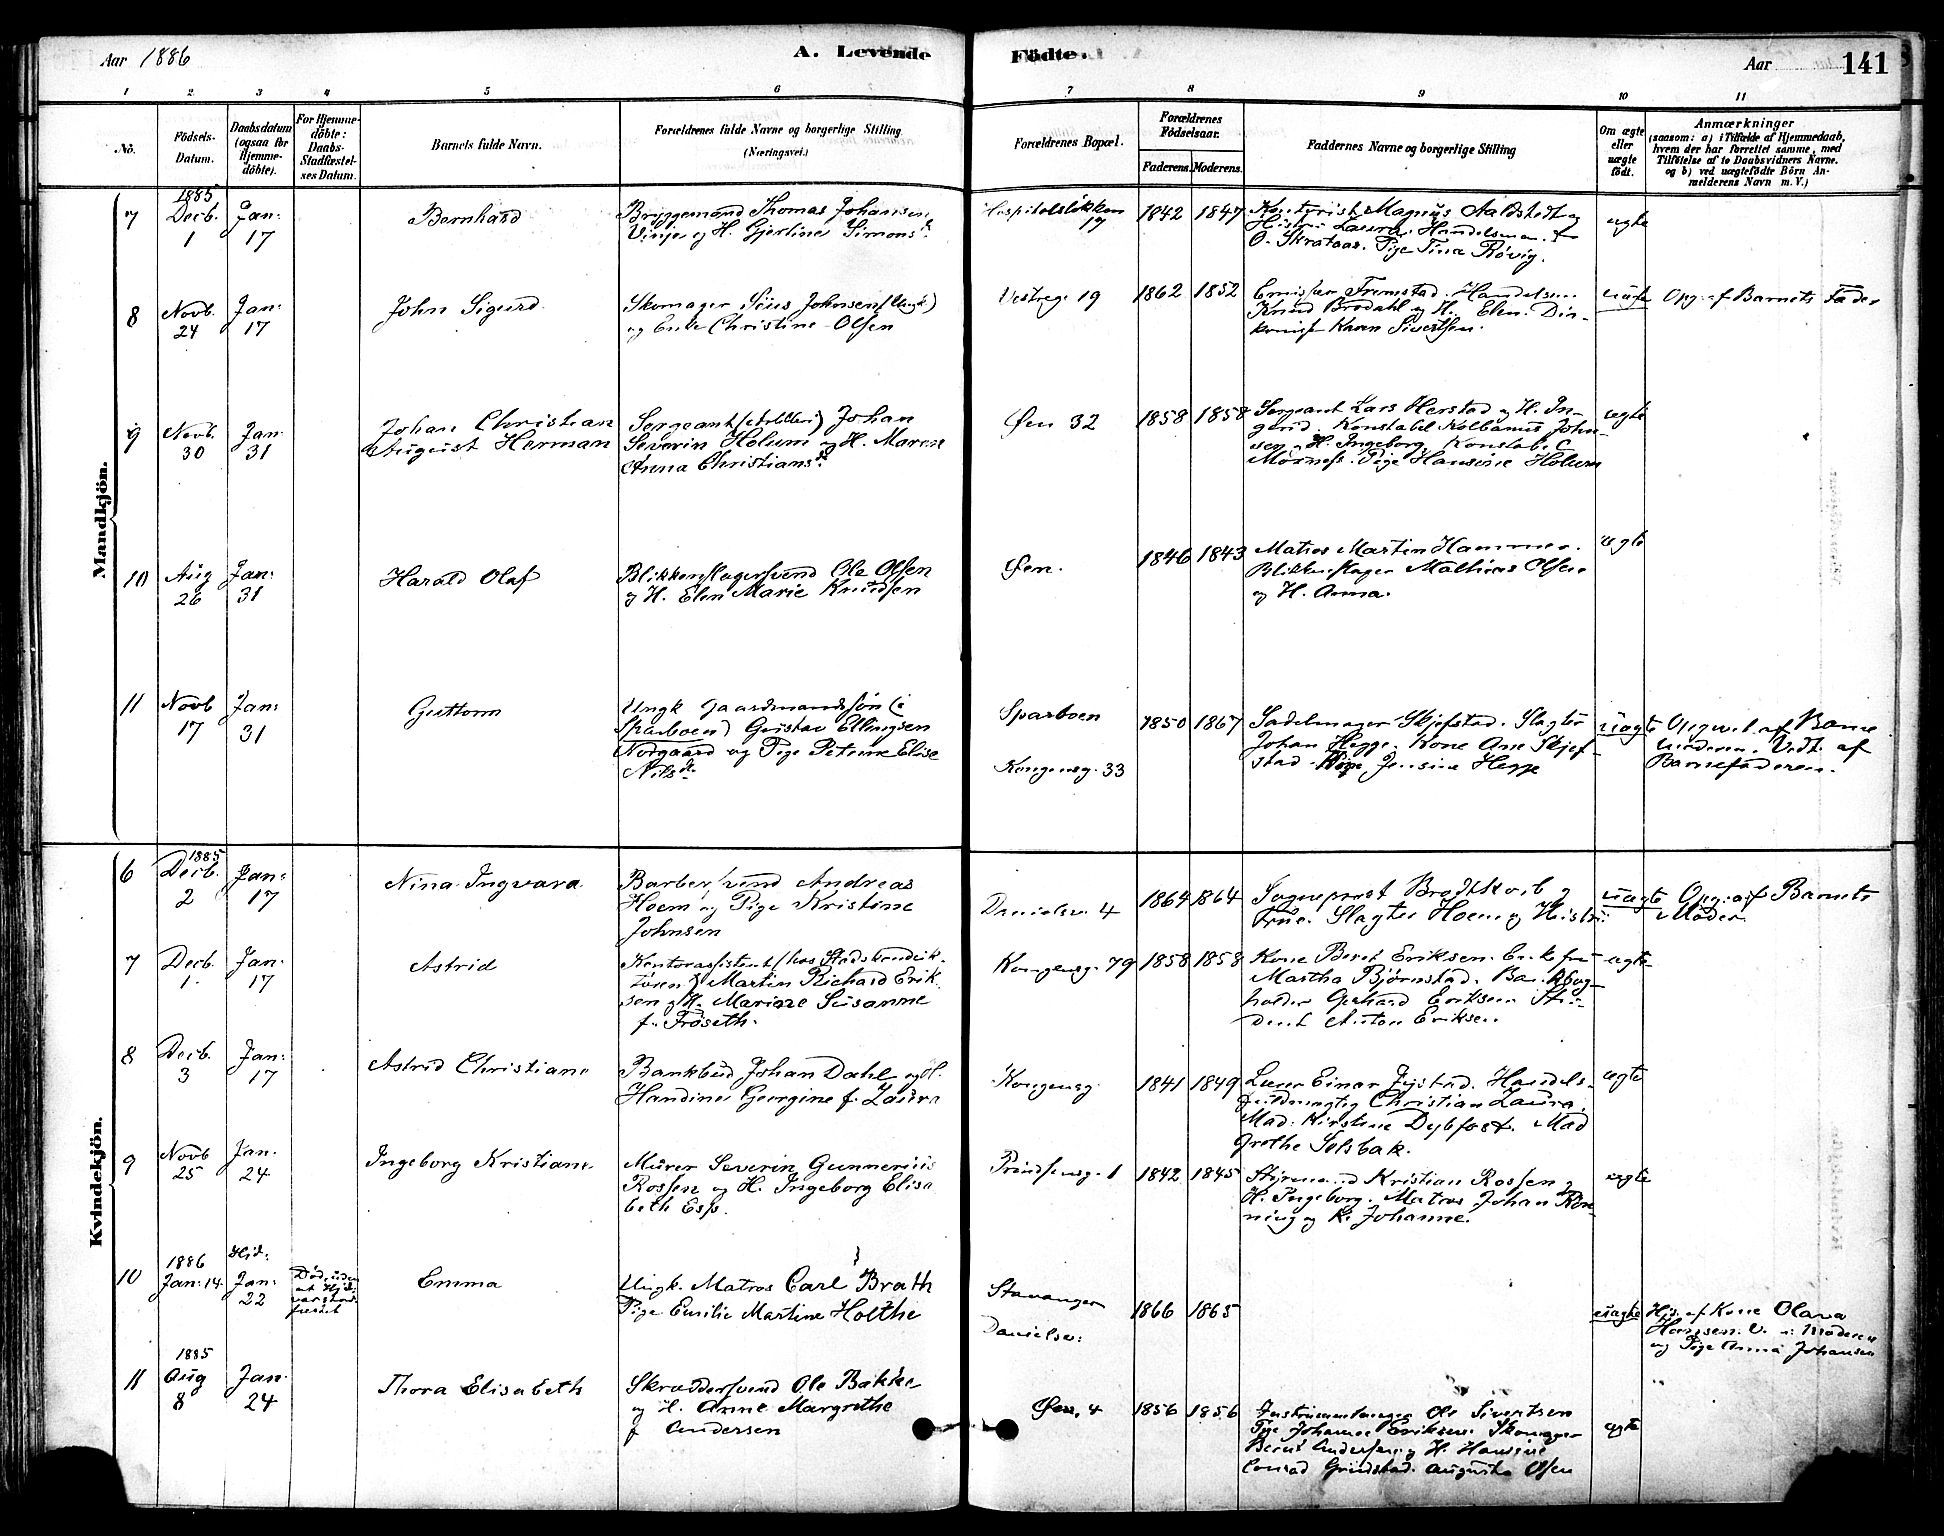 Aar 1886
A. Levende
Födte.
Aar
141
1 2 3 4 5 6 7 8 9 10 11
No.
Födsels-
Datum.
Daabsdatum
(ogsaa for
Hjemme-
döbte).
For Hjemme-
döbte:
Daabs-
Stadfæstel-
ses Datum.
Barnets fulde Navn.
Forældrenes fulde Navne og borgerlige Stilling
(Næringsvei.)
Forældrenes Bopæl.
Forældrenes
Födselsaar.
Faderens. Moderens.
Faddernes Navne og borgerlige Stilling
Om ægte
eller
uægte
født.
Anmærkninger
(saasom: a) i Tilfælde af Hjemmedaab,
hvem der har forrettet samme, med
Tilföielse af to Daabsvidners Navne.
og b) ved uægtefødte Börn An-
mælderens Navn m. V.)
Mandkjön.
7
1885
Decb. 1
Jan: 17
Bernhard
Bryggemand Thomas Johansen
Vinje og H. Gjertine Simonsd.
Hospitalsløkken
17
1842 1847
Kontorist Magnus Aaldstedt og
Hustru Laura. Handelsman
O. Skrataas. Pige Tina Røvig.
ægte
8
Novb. 24
Jan: 17
John Sigurd
Skomager Siius Johnsen (Ungk)
og Enke Christine Olsen
Vestreg. 19
1862 1852
Emissær Tremstad. Handelsm.
Knud Brodahl og H. Elen. Dia-
konisse Karen Sivertsen.
uægte
Opg. af Barnets Fader
9
Novb. 30
Jan. 31
Johan Christian
August Herman
Sergeant (Artilleri) Johan
Severin Holum og H. Maren
Anna Christiansd.
Øen 32
1858 1858
Sergeant Lars Herstad og H. In-
gerid. Konstabel Kolbanus John-
sen. H. Ingeborg. Konstab. C
Mörness. Pige Hansine Holum
ægte
10
Aug 26
Jan: 31
Harald Olaf
Blikkenslagersvend Ole Olsen
og H. Elen Marie Knudsen
Øen.
1846 1843
Matros Martin Hammer.
Blikkenslager Mathias Olsen
og H. Anna.
ægte
11
Novb 17
Jan: 31
Guttorm
Ungk Gaardmandssøn (i
Sparboen) Gustav Ellingsen
Norgaard og Pige Petrine Elise
Nilsd.
Sparboen
Kongensg. 33
1850 1867
Sadelmager Skjefstad. Slagter
Johan Hegge. Kone Ane Skjef-
stad. Pige Jensine Hegge
uægte
Opgivet af Barne
moderen. Vedt. af
Barnefaderen.
Kvindekjön.
6
1885
Decb. 2
Jan: 17
Nina Ingvara
Barbersvend Andreas
Hoem og Pige Kristine
Johnsen
Danielsv. 4
1864 1864
Sogneprest Brodtkorb og
Frue. Slagter Hoem og Hustru
uægte
Opg: af Barnets
Moder.
7
Decb. 1.
Jan: 17
Astrid
Kontorassistent (hos Stadskonduk-
tøren) Martin Richard Erik-
sen og H. Mariane Susanne
f. Frøseth.
Kongensg. 79
1858 1858
Kone Beret Eriksen. Enkefru
Martha Bjørnstad. Bankbog-
holder Gerhard Eriksen Stu-
dent Anton Eriksen.
ægte
8
Decb. 3
Jan: 17
Astrid Christiane
Bankbud Johan Dahl og H.
Handine Georgine f. Laura
Kongensg.
1841 1849
Lærer Einar Fjstad. Handels-
fuldmægtig Christian Laura,
Mad. Kirstine Dybfest. Mad
Grethe Solsbak.
ægte
9
Novb 25
Jan. 24
Ingeborg Kristiane
Murer Severin Gunnerius
Rossen og H. Ingeborg Elisa
beth Esp.
Prindsensg. 1
1842 1845
Styrmand Kristian Rossen og
H. Ingeborg. Matros Johan Røn-
ning og K. Johanne.
ægte
10
1886
Jan: 14.
Hjd: Jan: 22
Død, uden
at Hjd.
var stad-
fæstet
Emma
Ungk. Matros Carl Brath
Pige Emilie Martine Holthe
Stavanger
Danielsv:
1866 1865
uægte
Hjd. af Kone Olava
Hanssen. V. : Moderen
og Pige Anna Johansen
11
1885
Aug 8
Jan. 24
Thora Elisabeth
Skræddersvend Ole Bakke
og H. Anne Margrethe
f Andersen
Øen, 4
1856 1856
Instrumentmager Ole Sivertsen
Pige Johanna Eriksen. Skomager
Bernt Andersen og H. Hansine
Conrad Grindstad. Augusta Olsen
ægte